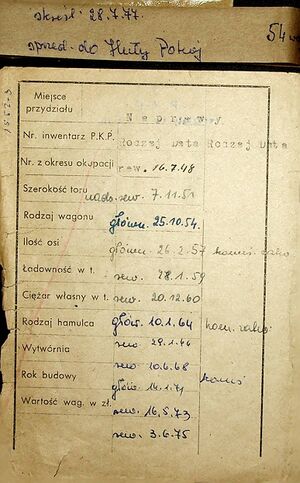 skreśl. 28.7.77.
sprzed. do Huty Pokój
54
1552-3
Miejsce przydziału
Naprawy
Nr. inwentarz P.K.P. Rodzaj Data Rodzaj Data
Nr. z okresu okupacji rew. 16.7.48
Szerokość toru nads. rew. 7.11.51
Rodzaj wagonu główn. 25.10.54.
Ilość osi główn. 26.2.57
Ładowność w t. rew. 28.1.59
Ciężar własny w t. rew. 20.12.60
Rodzaj hamulca główn. 10.1.64
rew 29.1.46
Wytwórnia
rew 10.6.68
Rok budowy
główn. 14.1.71
Wartość wag. w zł. rew. 16.5.73
rew. 3.6.75